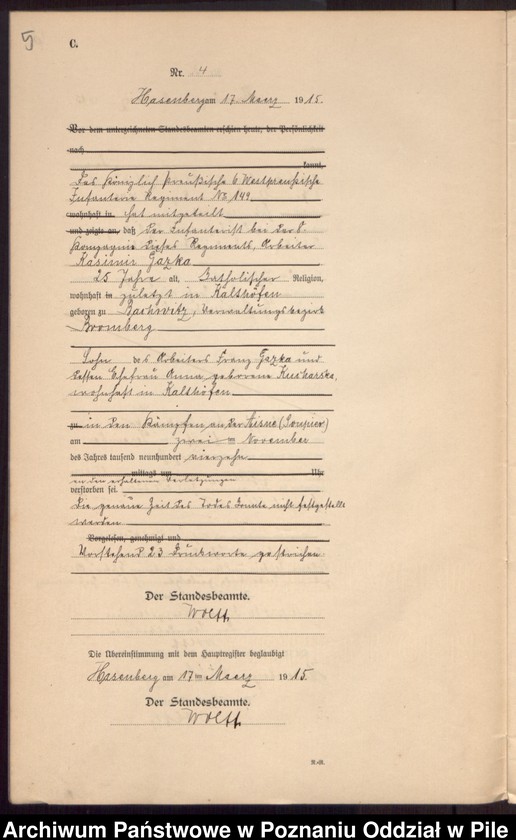 5
C.
Nr. 4
Hasenberg am 17 Maerz 1915.
Vor dem unterzeichneten Standesbeamten erschien heute, der Persönlichkeit
nach
kannt,
Das Königlich Preußische 6 Westpreußische
Infanterie Regiment No 149
wohnhaft in hat mitgeteilt
und zeigte an, daß der Infanterist bei der 8.
Kompagnie dieses Regiments, Arbeiter
Kasimir Gazka
25 Jahre alt, Katholischer Religion,
wohnhaft in zuletzt in Kalthöfen
geboren zu Verwaltungsbezirk
Bromberg
Sohn des Arbeiters Franz Gazka und
dessen Ehefrau Anna geborene Kucharska,
wohnhaft in Kalthöfen
zu in den Kämpfen an der Aisne (Soupier)
am zwei ten November
des Jahres tausend neunhundert vierzehn
mittags um Uhr
an den erhaltenen Verletzungen
verstorben sei.
Die genaue Zeit des Todes konnte nicht festgestellt
werden
Vorgelesen, genehmigt und
Vorstehend 23 Druckworte gestrichen
Der Standesbeamte.
Wolff
Die Übereinstimmung mit dem Hauptregister beglaubigt
Hasenberg am 17 ten Maerz 1915.
Der Standesbeamte.
Wolff
Archiwum Państwowe w Poznaniu Oddział w Pile